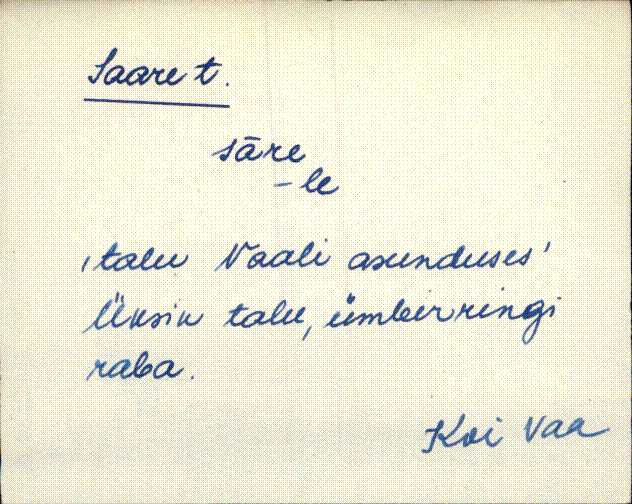 Saare t.
sāre
-le
'talu Vaali asunduses'
Üksik talu, ümberringi
raba.
Koi Vaa